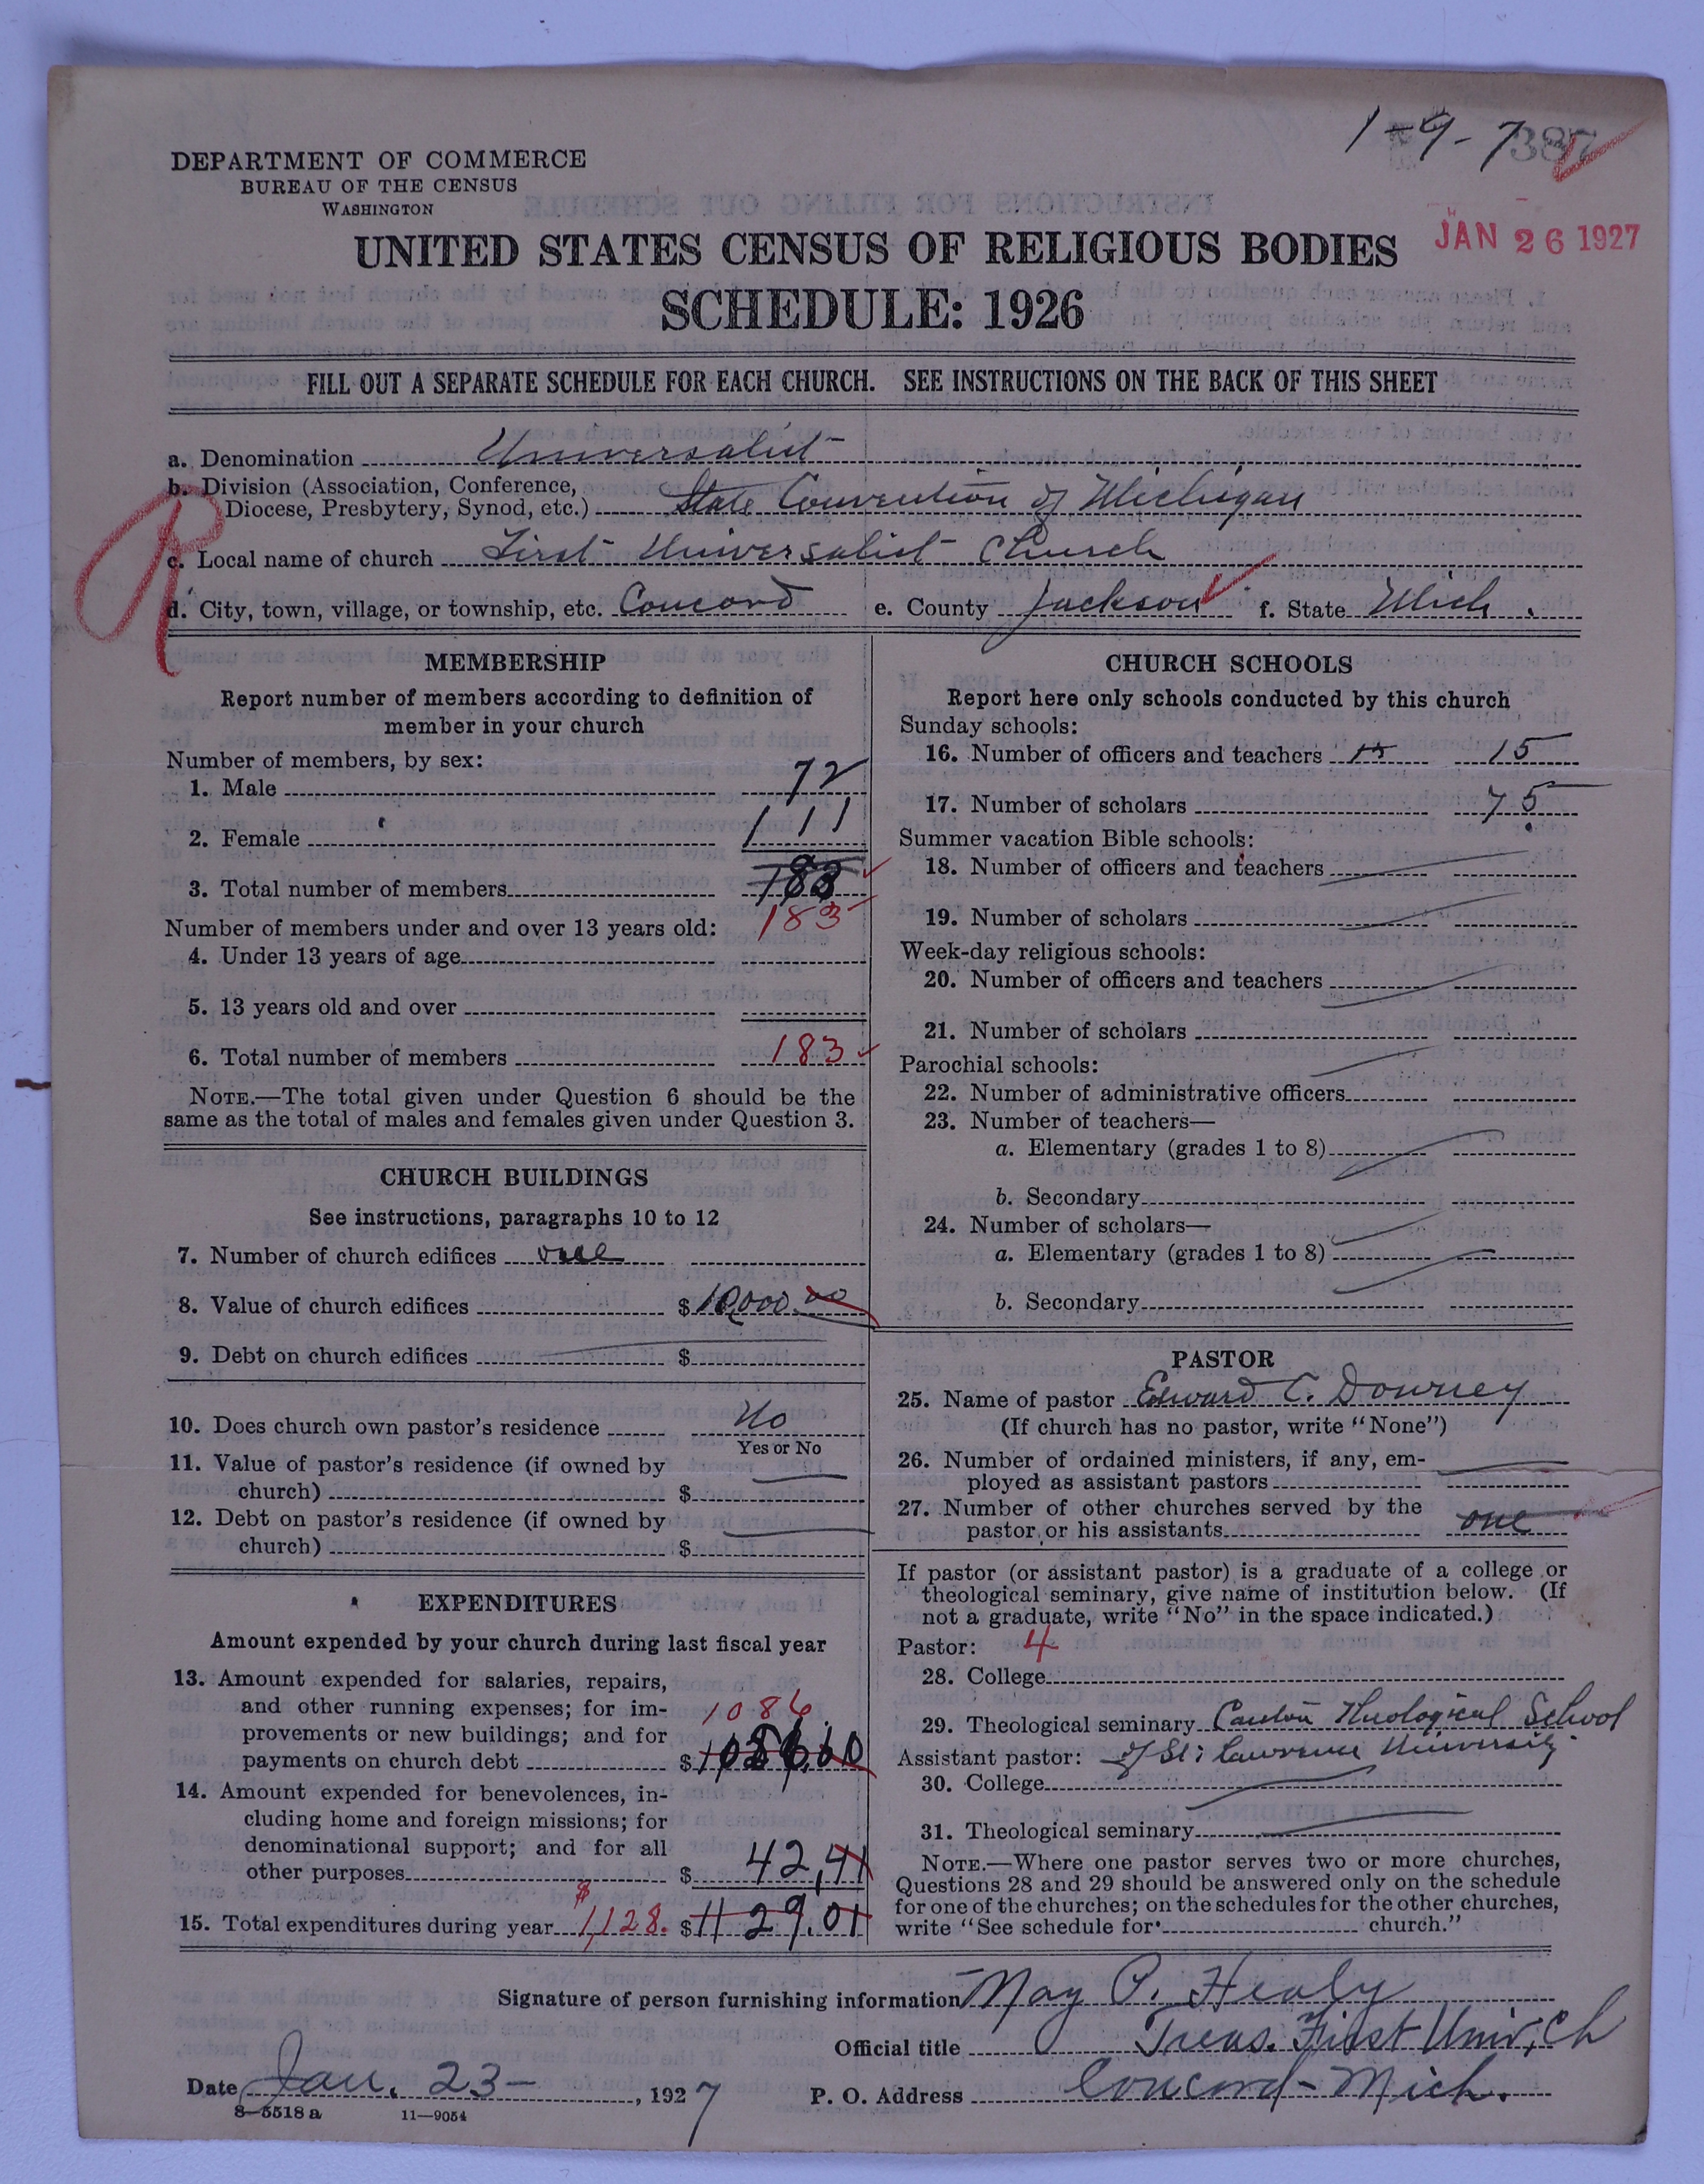 1-9-7 387
DEPARTMENT OF COMMERCE
BUREAU OF THE CENSUS
WASHINGTON
JAN 26 1927
UNITED STATES CENSUS OF RELIGIOUS BODIES
SCHEDULE: 1926
FILL OUT A SEPARATE SCHEDULE FOR EACH CHURCH. SEE INSTRUCTIONS ON THE BACK OF THIS SHEET
R
a. Denomination Universalist
b. Division (Association, Conference,
Diocese, Presbytery, Synod, etc.) State Convention of Michigan
c. Local name of church First Universalist Church
d. City, town, village, or township, etc. Concord e. County Jackson f. State Mich.
MEMBERSHIP
Report number of members according to definition of
member in your church
Number of members, by sex:
1. Male 72
2. Female 111
3. Total number of members 183
183
Number of members under and over 13 years old:
4. Under 13 years of age
5. 13 years old and over
6. Total number of members 183
NOTE.—The total given under Question 6 should be the
same as the total of males and females given under Question 3.
CHURCH BUILDINGS
See instructions, paragraphs 10 to 12
7. Number of church edifices one
8. Value of church edifices $10,000.00
9. Debt on church edifices $
10. Does church own pastor's residence No
Yes or No
11. Value of pastor's residence (if owned by
church) $
12. Debt on pastor's residence (if owned by
church) $
EXPENDITURES
Amount expended by your church during last fiscal year
13. Amount expended for salaries, repairs,
and other running expenses; for im-
provements or new buildings; and for
payments on church debt $ 1086.60
1086.
14. Amount expended for benevolences, in-
cluding home and foreign missions; for
denominational support; and for all
other purposes $ 42,41
15. Total expenditures during year $1,128. $1129.01
CHURCH SCHOOLS
Report here only schools conducted by this church
Sunday schools:
16. Number of officers and teachers 15 15
17. Number of scholars 75
Summer vacation Bible schools:
18. Number of officers and teachers
19. Number of scholars
Week-day religious schools:
20. Number of officers and teachers
21. Number of scholars
Parochial schools:
22. Number of administrative officers
23. Number of teachers—
a. Elementary (grades 1 to 8)
b. Secondary
24. Number of scholars—
a. Elementary (grades 1 to 8)
b. Secondary
PASTOR
25. Name of pastor Edward C. Downey
(If church has no pastor, write "None")
26. Number of ordained ministers, if any, em-
ployed as assistant pastors
27. Number of other churches served by the
pastor or his assistants one
If pastor (or assistant pastor) is a graduate of a college or
theological seminary, give name of institution below. (If
not a graduate, write "No" in the space indicated.)
Pastor: 4
28. College
29. Theological seminary Canton Theological School
Assistant pastor: of St. Lawrence University
30. College
31. Theological seminary
NOTE.—Where one pastor serves two or more churches,
Questions 28 and 29 should be answered only on the schedule
for one of the churches; on the schedules for the other churches,
write "See schedule for church."
Signature of person furnishing information May P. Healy
Official title Treas. First Univ. Ch
Date Jan. 23-, 1927 P. O. Address Concord-Mich.
8-5518 a 11-9054